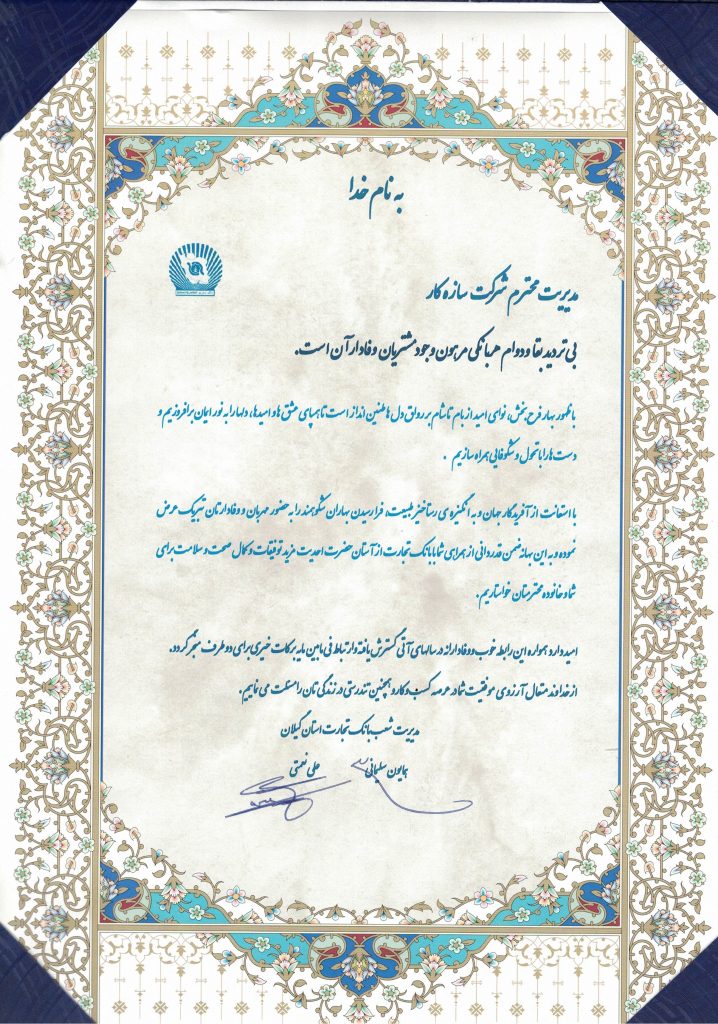 به نام خدا
مدیریت محترم شرکت سازه کار
بی تردید بقا و دوام هر بانکی مرهون وجود مشتریان وفادار آن است.
با ظهور بهار فرح بخش، نوای امید از بام تا شام بر رواق دل ها طنین انداز است تا همپای عشق ها و امیدها، دلها را به نور ایمان برافروزیم و
دست ها را با تحول و شکوفایی همراه سازیم .
با استعانت از آفریدگار جهان و به انگیزه ی رستاخیز طبیعت، فرا رسیدن بهاران شکوهمند را به حضور مهربان و وفادارتان تبریک عرض
نموده و به این بهانه ضمن قدردانی از همراهی شما با بانک تجارت از آستان حضرت احدیت مزید توفیقات و کمال صحت و سلامت برای
شما و خانواده محترمتان خواستاریم.
امید دارد همواره این رابطه خوب و وفادارانه در سالهای آتی گسترش یافته و ارتباط فی مابین مایه برکات خیری برای دو طرف منجر گردد.
از خداوند متعال آرزوی موفقیت شما در عرصه کسب و کار و همچنین تندرستی در زندگی تان را مسئلت می نماییم.
مدیریت شعب بانک تجارت استان گیلان
همایون سلیمانی علی نعمتی